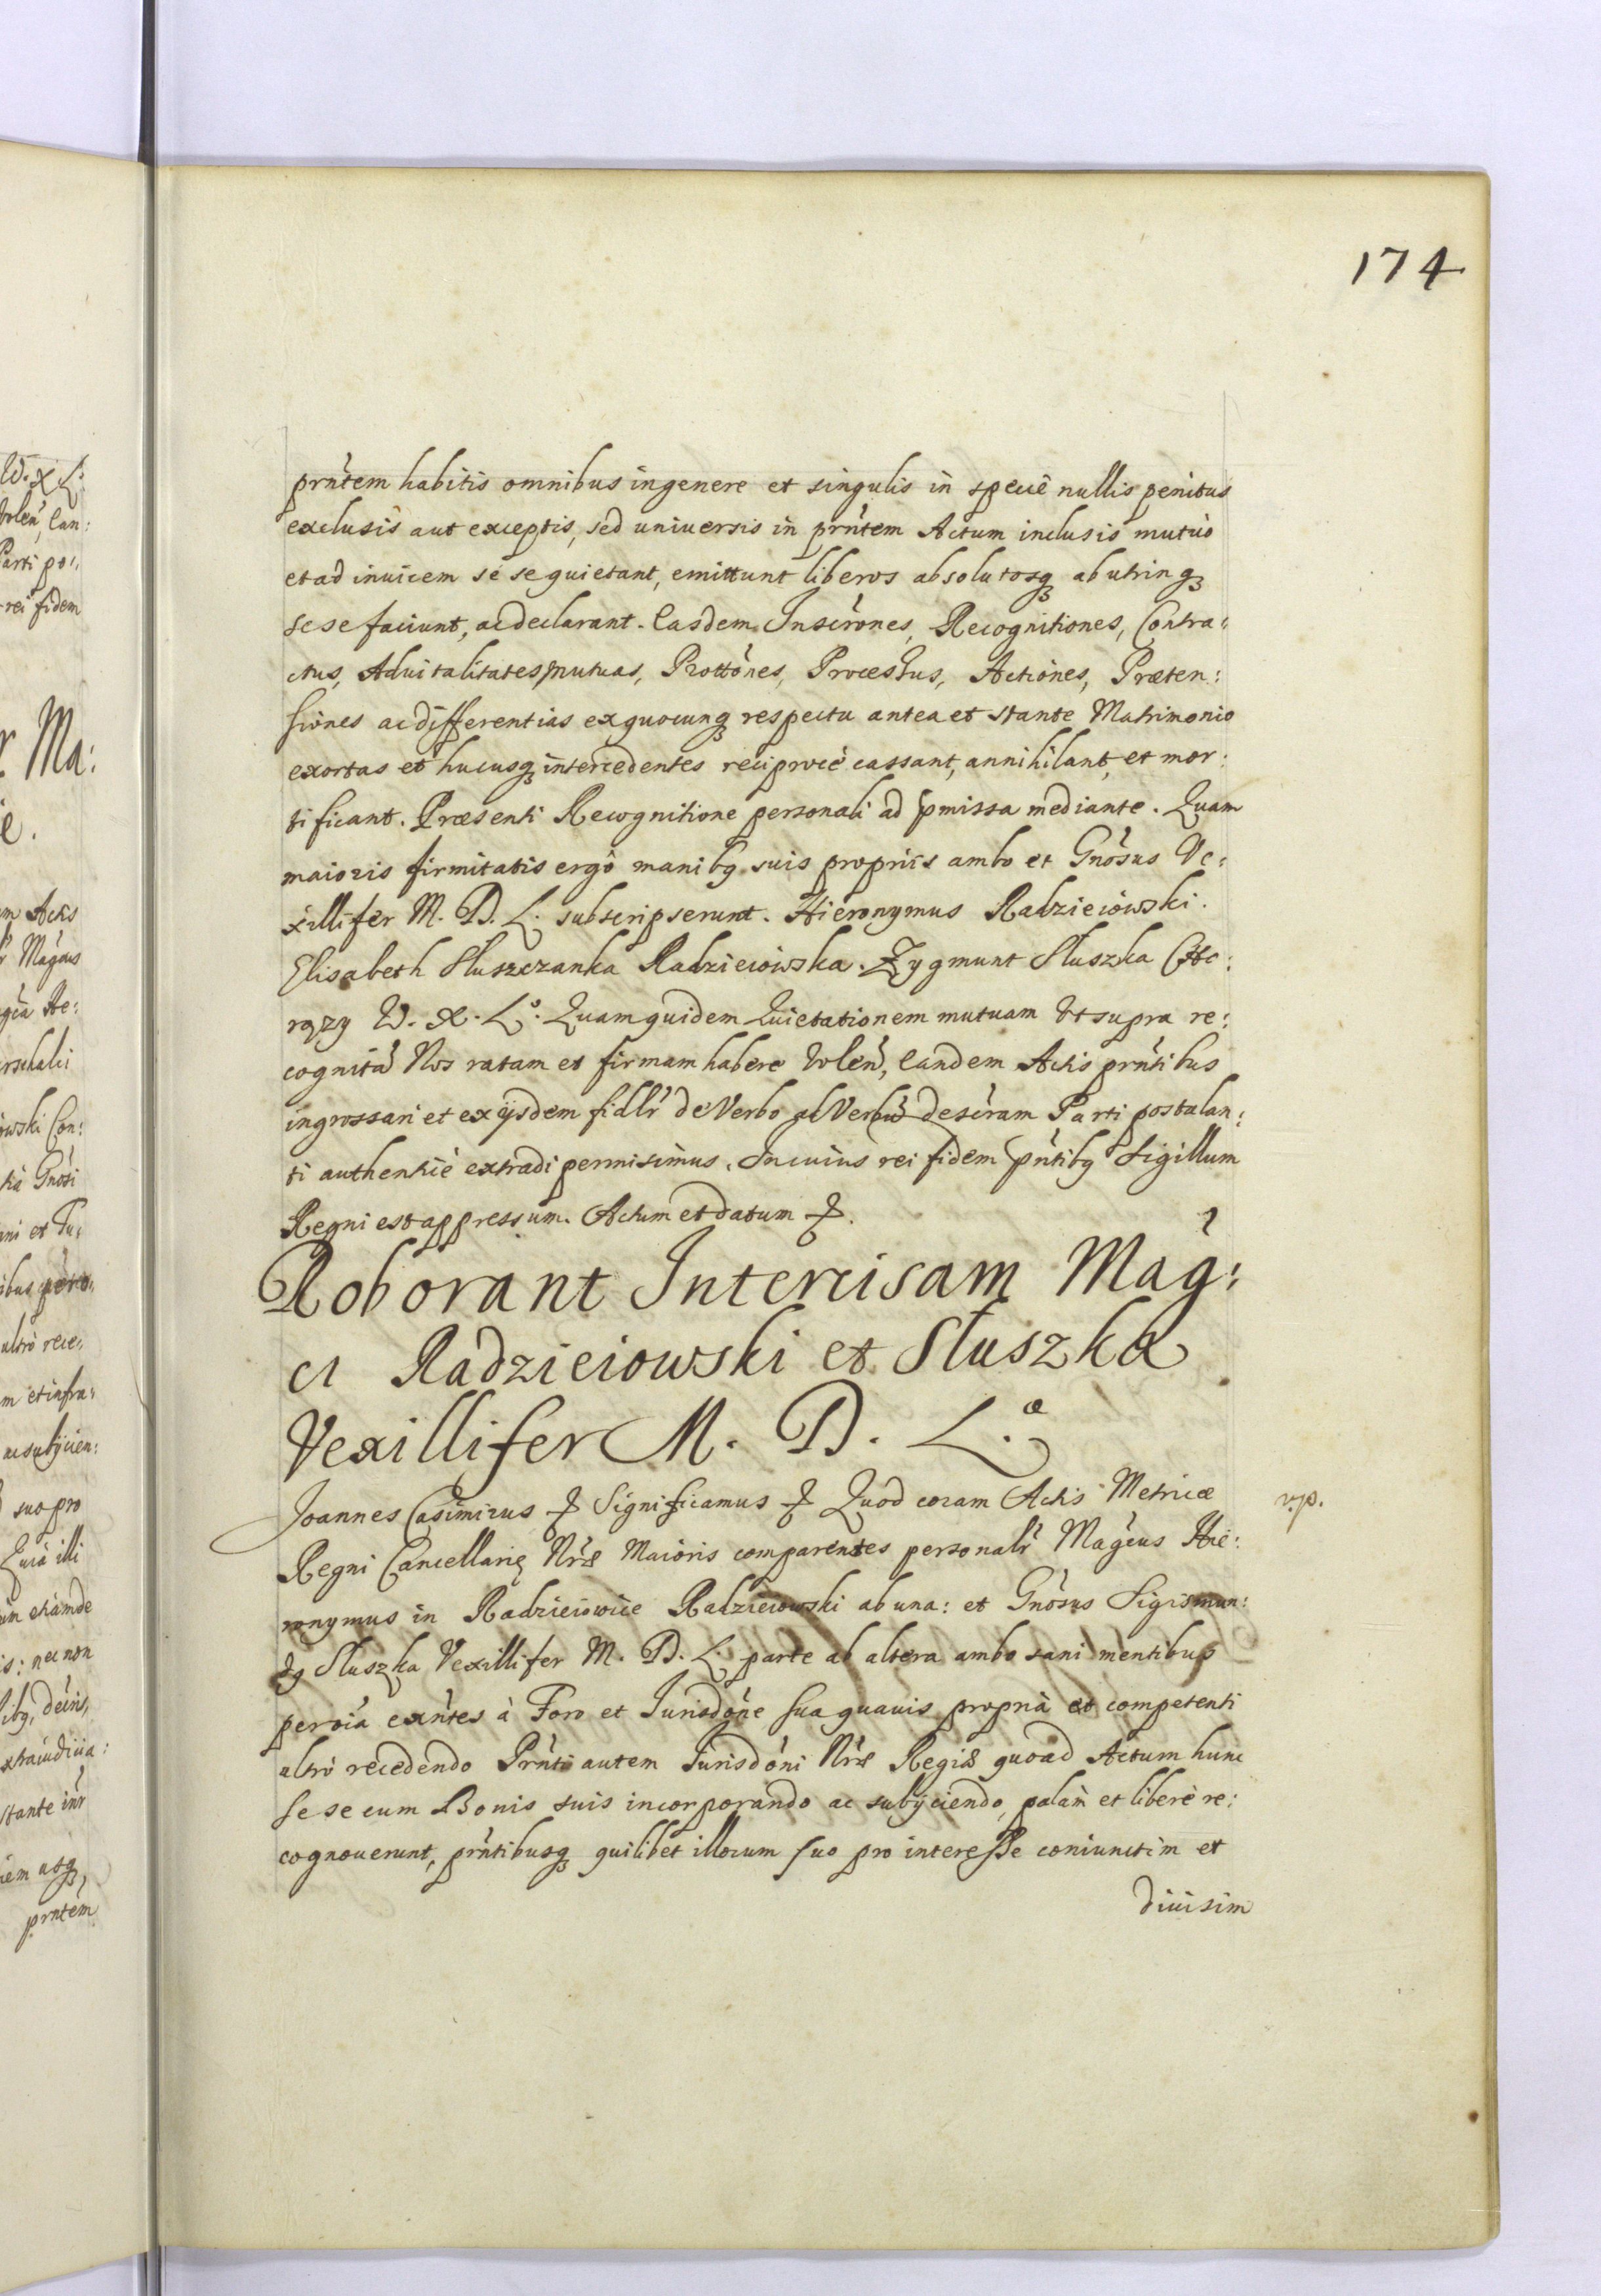 174
prńtem habitis omnibus ingenere et singulis in specié nullis penitus
exclusis aut exceptis, sed uniuersis in prńtem Actum inclusis mutuò
et ad inuicem se se quietant, emittunt liberos absolutosq3 ab utrinq3
sese faciunt, ac declarant. Easdem Inscrónes, Recognitiones, Contra:
ctus, Aduitalitates mutuas, Prottónes, Processus, Actiones, Præten:
siones ac differentias ex quocunq3 respectu antea et stante Matrimonio
exortas et hucusq3 intercedentes reciprocé cassant, annihilant, et mor:
tificant. Præsenti Recognitione personali ad pmissa mediante. Quam
maioris firmitatis ergò manibq suis propriis ambo et Gnósus Ve:
xillifer M. D. L. subscripserunt. Hieronymus Radzieiowski.
Elisabeth Słuszczanka Radzieiowska. Zygmunt Słuszka Cho:
rąży W. X. Lº. Quam quidem Quietationem mutuam Ut supra re:
cognitã Nos ratam et firmam habere Volen, Eandem Actis prńtibus
ingrossari et ex ijsdem fidlr de Verbo ad Verbũ descram Parti postulan:
ti authenticè extradi permisimus. In cuius rei fidem pńtibq Sigillum
Regni est appressum. Actum et datum &.
Roborant Intercisam Mag:
ci Radzieiowski et Słuszka
Vexillifer M. D. L.æ
Joannes Casimirus & Significamus & Quod coram Actis Metricæ
v.p.
Regni Cancellarię Nræ Maioris comparentes personalr Magcus Hie:
ronymus in Radzieiowice Radzieiowski ab una: et Gnósus Sigismun:
dq Sluszka Vexillifer M. D. L. parte ab altera ambo sani mentibus
per oia exńtes à Foro et Jurisdóne sua quauis proprià et competenti
ultrò recedendo Prńti autem Jurisdóni Nræ Regiæ quoad Actum hunc
se se cum Bonis suis incorporando ac subijciendo, palàm et liberè re:
cognouerunt, prńtibusq3 quilibet illorum suo pro interesse coniunctim et
diuisim